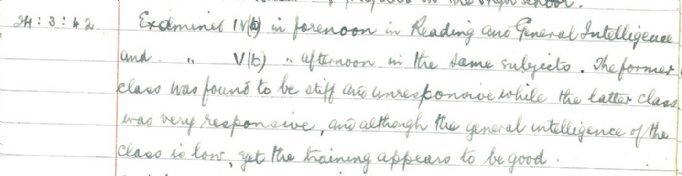 24:3:42 Examined IV(a) in forenoon in Reading and General Intelligence
and " V(b) " afternoon in the same subjects. The former
class was found to be stiff and unresponsive while the latter class
was very responsive, and although the general intelligence of the
class is low, yet the training appears to be good.